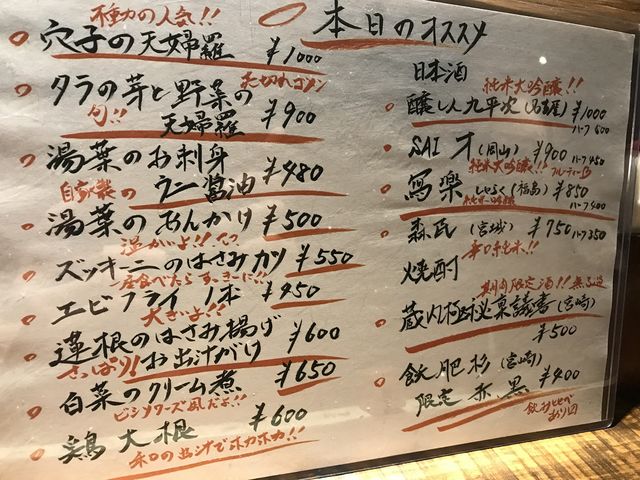 不動の人気!!
穴子の天婦羅 ¥1000
タラの芽と野菜の
売切れゴメン
旬!!
天婦羅 ¥900
湯葉のお刺身
自家製の ウニ醤油 ¥980
湯葉のあんかけ ¥500
温かいよ!!
ズッキーニのはさみカツ ¥550
一度食べたらすっきーに!!
エビフライ 1本 ¥950
大きいよ!!
蓮根のはさみ揚げ ¥600
さっぱり!お出汁がけ
白菜のクリーム煮 ¥650
ビシソワーズ風だよ!!
鶏大根 ¥600
和の出汁でホカホカ!!
本日のオススメ
日本酒
純米大吟醸!!
醸し人九平次(名古屋) ¥1000
ハーフ500
SAI 才(岡山) ¥900 ハーフ450
純米大吟醸!! フルーティ
写楽 しゃらく(福島) ¥850
純米吟醸 ハーフ400
森民(宮城) ¥750 ハーフ350
辛口純米!!
焼酎
期間限定酒!!無濾過
蔵内極秘稟議書(宮崎)
¥500
飫肥杉(宮崎) ¥400
限定 赤 黒